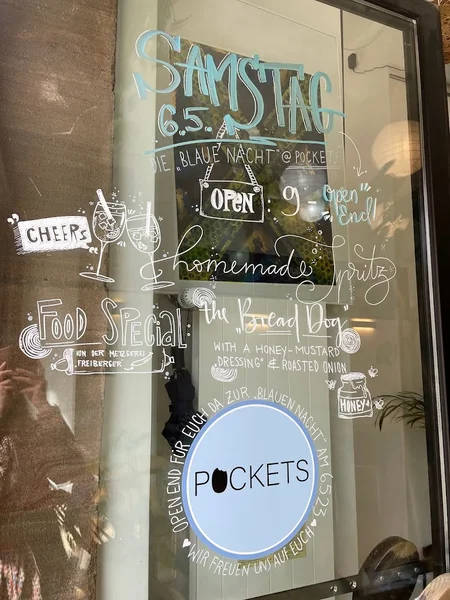 SAMSTAG
6.5.
DIE „BLAUE NACHT" @ POCKETS
OPEN
9 - „Open End!"
CHEERS
homemade Spritz
FOOD SPECIAL
VON DER METZGEREI
„FREIBERGER"
the „Bread Dog"
WITH A HONEY-MUSTARD
„DRESSING" & ROASTED ONION
HONEY
OPEN END FÜR EUCH DA ZUR „BLAUEN NACHT" AM 6.5.23
POCKETS
♥ WIR FREUEN UNS AUF EUCH ♥